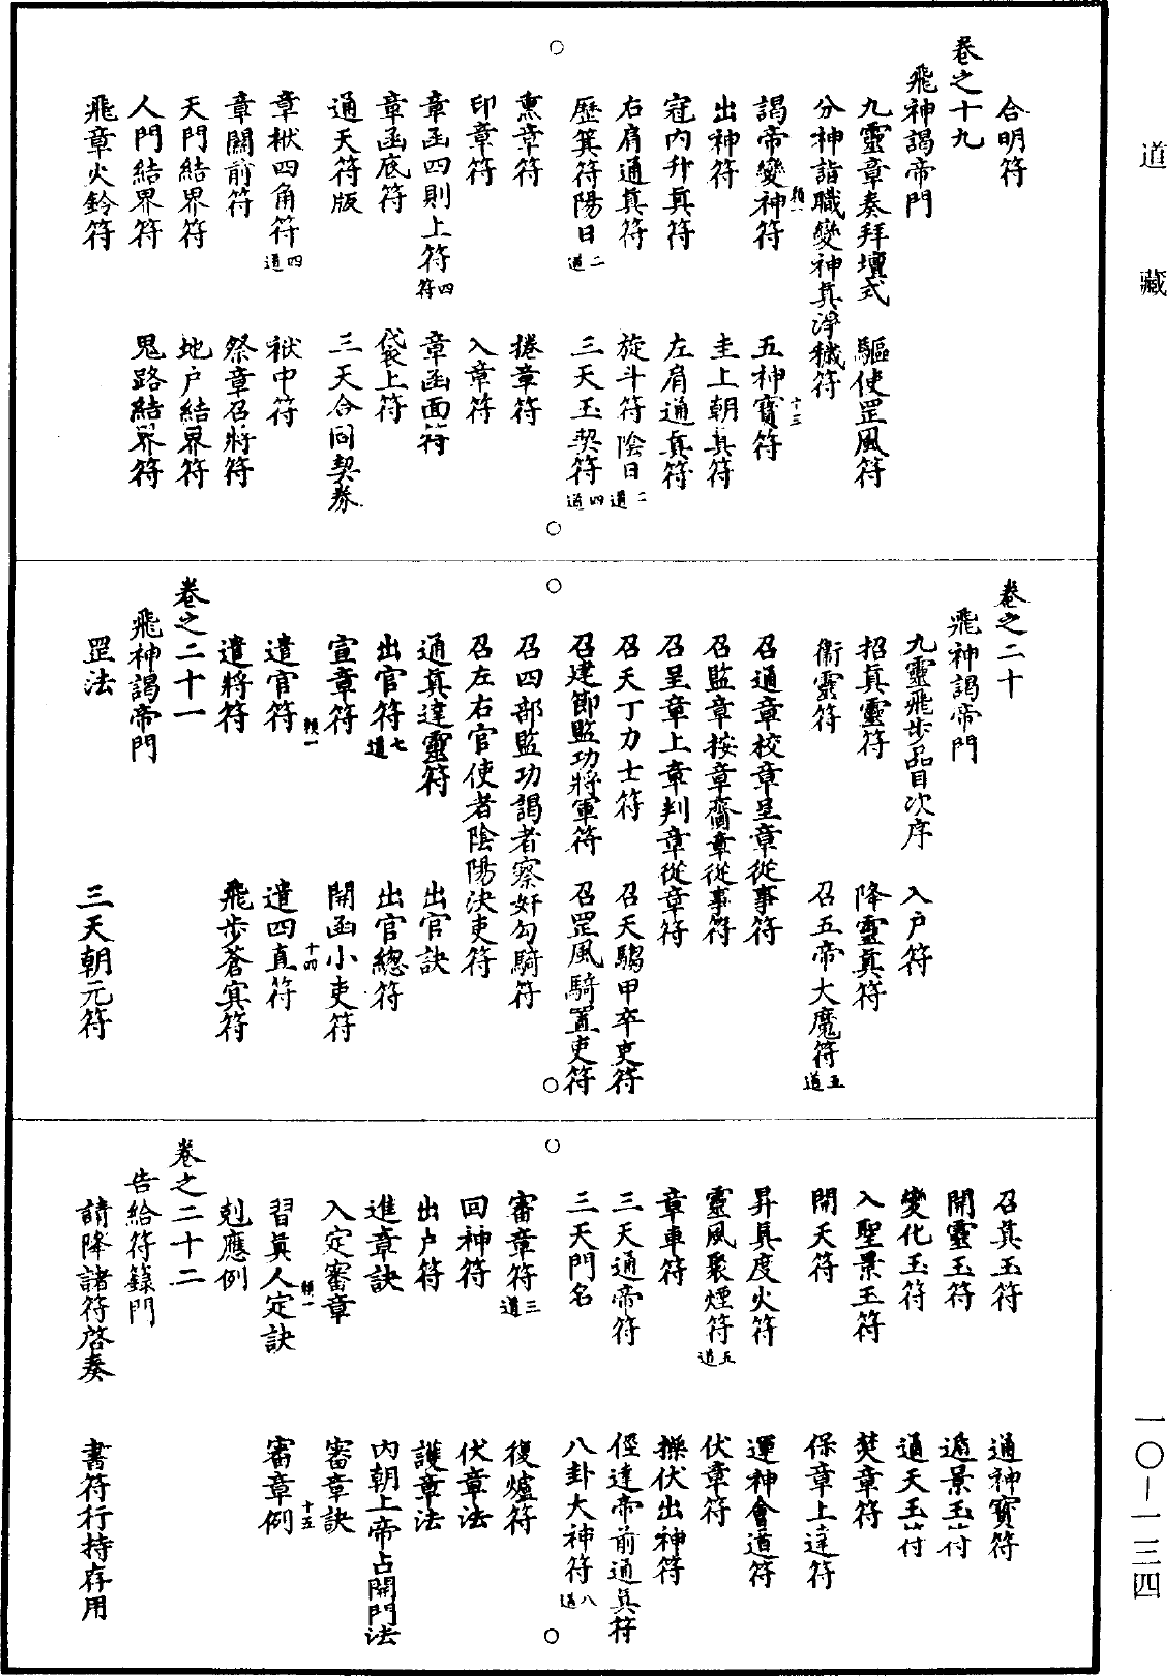 道藏
合明符
卷之十九
飛神謁帝門
九靈章奏拜壇式　驅使罡風符
分神詣職變神真淨穢符
謁帝變神符　五神寶符
出神符　圭上朝真符
冠內升真符　左肩通真符
右肩通真符　旋斗符陰日二道
歷箕符陽日二道　三天玉契符四道
熏章符　捲章符
印章符　入章符
章函四則上符四符　章函面符
章函底符　袋上符
通天符版　三天合同契券
章栿四角符四道　栿中符
章關前符　祭章召將符
天門結界符　地户結界符
人門結界符　鬼路結界符
飛章火鈴符
卷之二十
飛神謁帝門
九靈飛步品目次序　入户符
招真靈符　降靈真符
衞靈符　召五帝大魔符五道
召通章校章呈章從事符
召監章按章齎章從事符
召呈章上章判章從章符
召天丁力士符　召天騶甲卒吏符
召建節監功將軍符　召罡風騎置吏符
召四部監功謁者察奸勾騎符
召左右官使者陰陽決吏符
通真達靈符　出官訣
出官符七道　出官總符
宣章符　開函小吏符
遣官符　遣四直符
遣將符　飛步蒼冥符
卷之二十一
飛神謁帝門
罡法　三天朝元符
召真玉符　通神寶符
開靈玉符　遁景玉符
變化玉符　通天玉符
入聖景玉符　焚章符
開天符　保章上達符
昇真度火符　運神會道符
靈風聚煙符五道　伏章符
章車符　操伏出神符
三天通帝符　徑達帝前通真符
三天門名　八卦大神符八道
審章符三道　復爐符
回神符　伏章法
出户符　護章法
進章訣　內朝上帝占開門法
入定審章　審章訣
習真人定訣　審章例
剋應例
卷之二十二
告給符籙門
請降諸符啓奏　書符行持存用
一〇—一三四